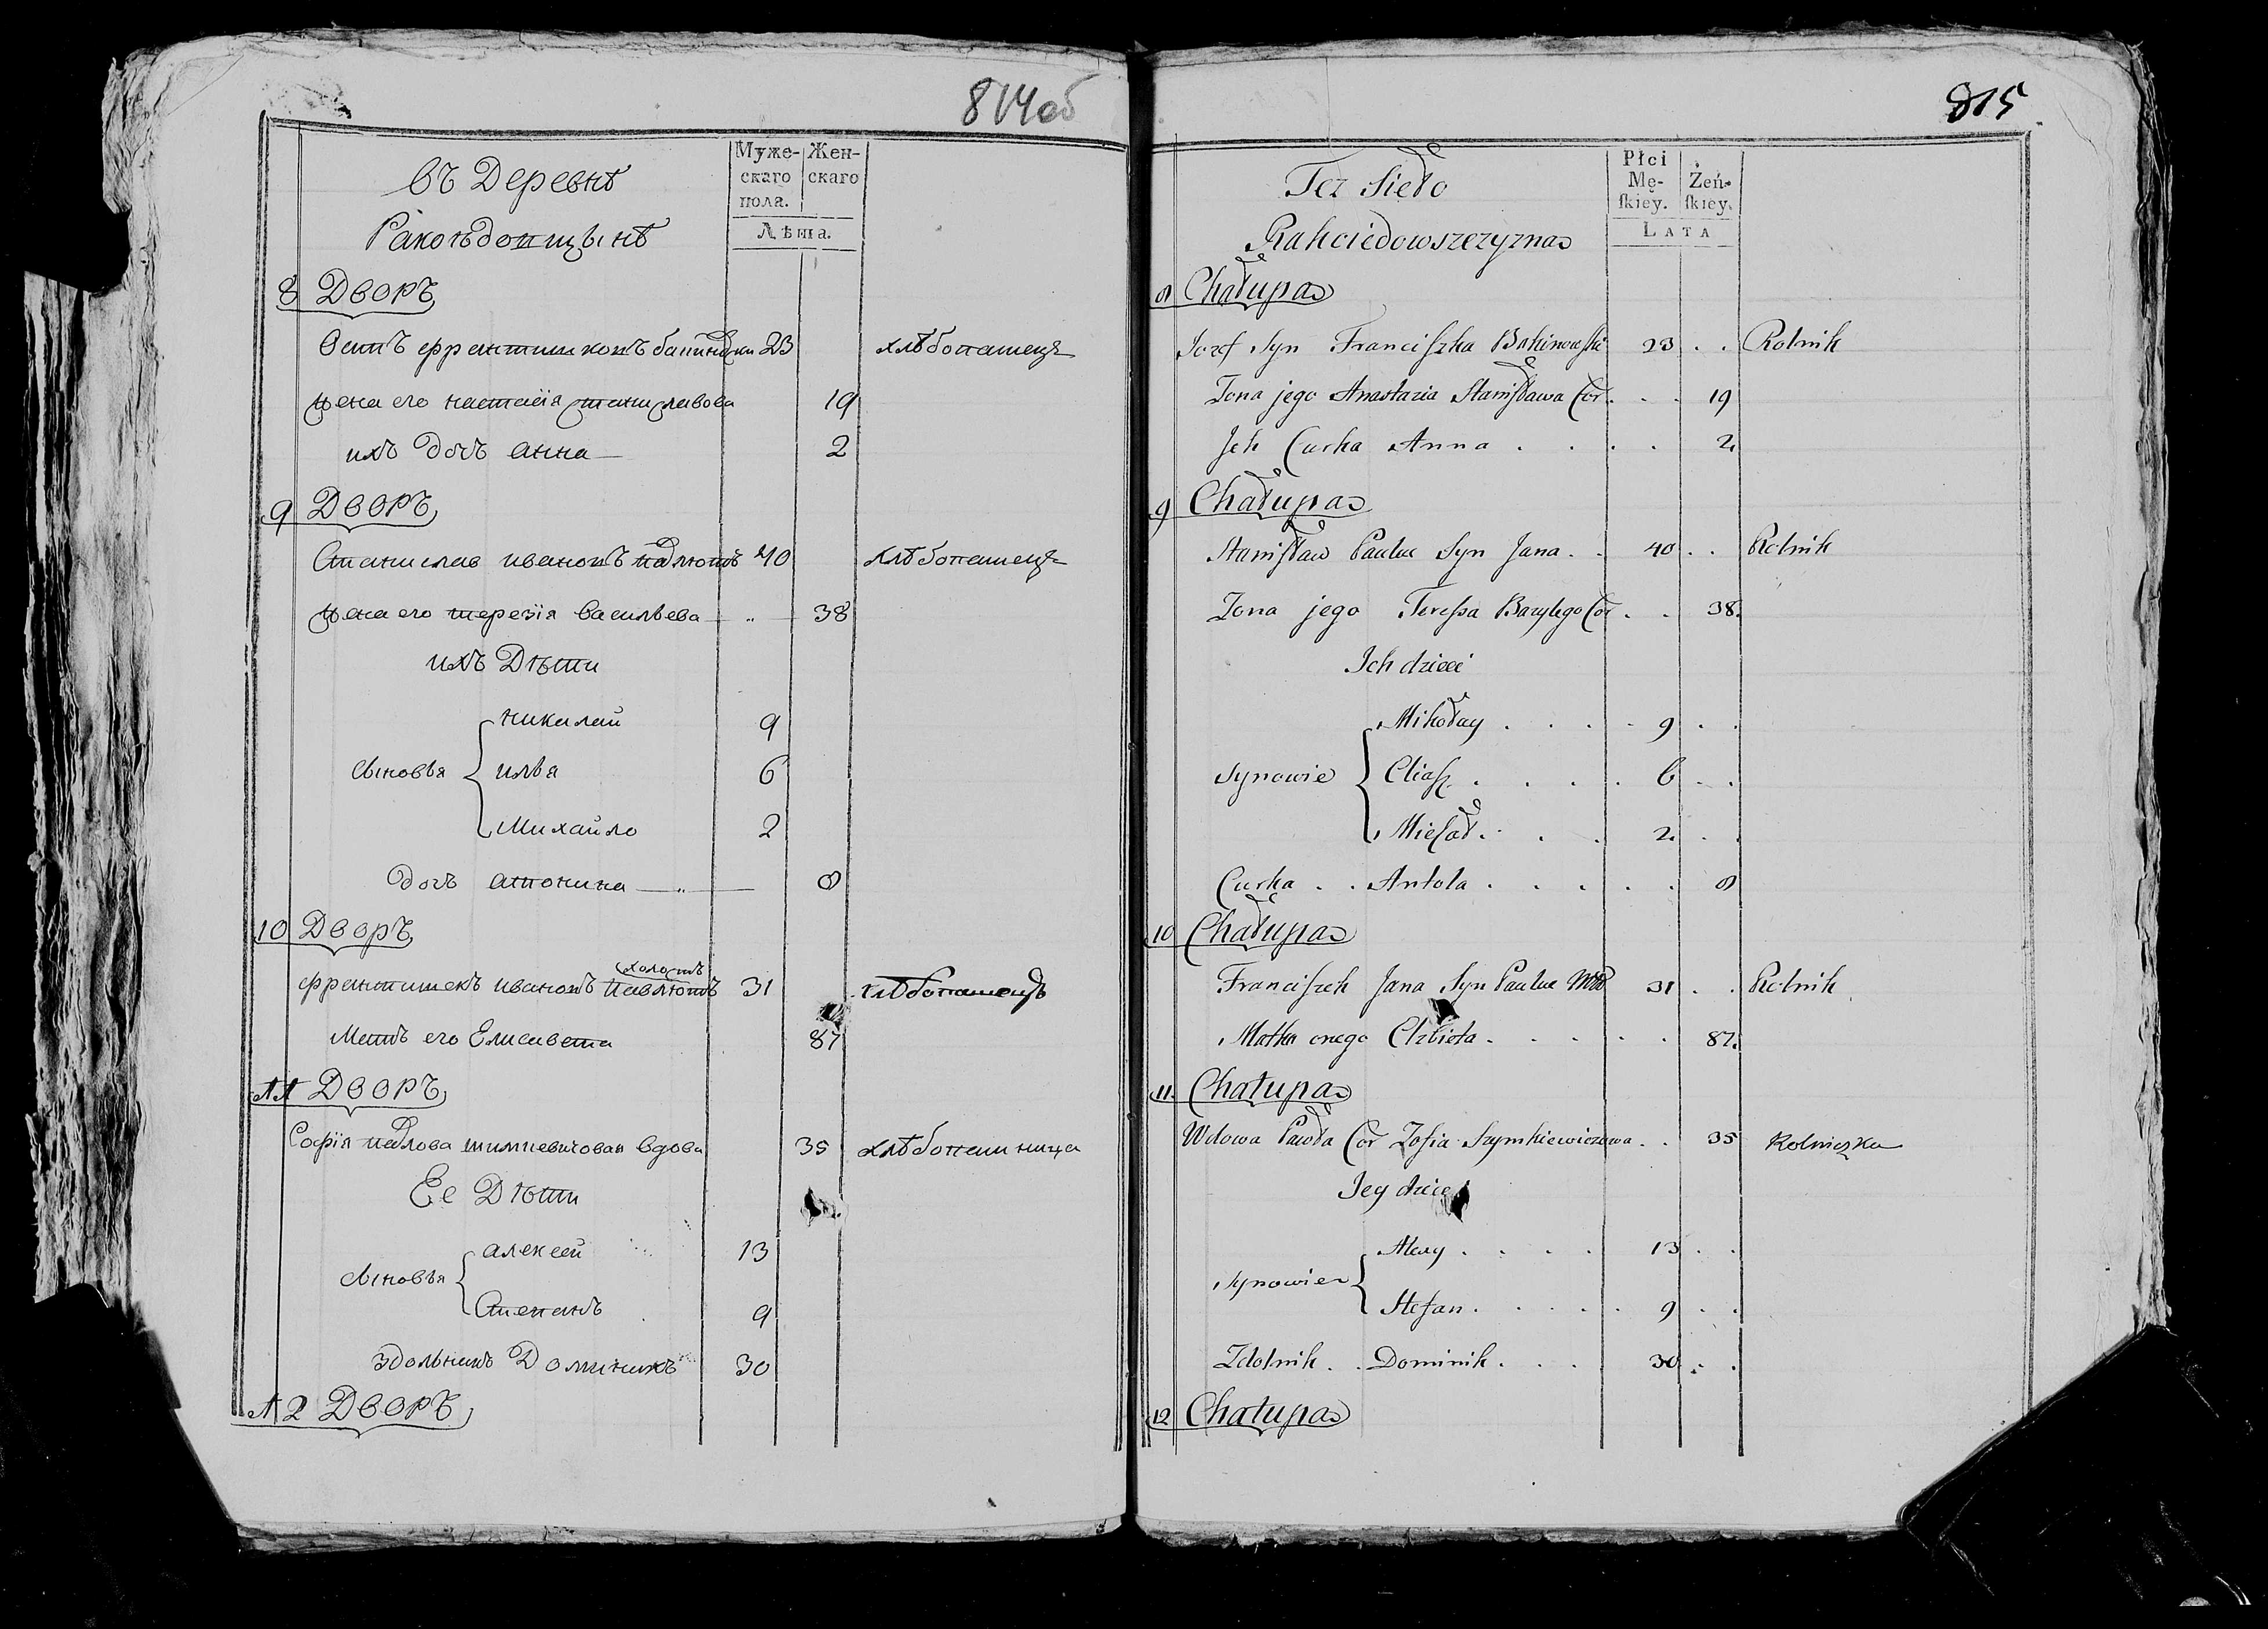 814об
въ Деревнѣ
Мужескаго пола. Женскаго
Лѣта.
8 Дворъ
23 хлѣбопашецъ
жена его настасія станиславова 19
ихъ дочъ анна 2
9 Дворъ
Станислав ивановъ павлютъ 40 хлѣбопашецъ
жена его терезія васильева 38
ихъ Дѣти
николай 9
сыновья илья 6
Михайло 2
дочъ антонина 8
10 Дворъ
холостъ
франтишекъ ивановъ Павлютъ 31 хлѣбопашецъ
Мать его Елисавета 87
11 Дворъ
Софія павлова шимкевичовая вдова 35 хлѣбопашница
Ее Дѣти
алексей 13
сыновья
Степанъ 9
здольникъ Доминикъ 30
12 Дворъ
815
Też Sieło
Płci Mę-skiey. Żeń-skiey.
LATA
8 Chałupa
Jozef Syn Franciszka 23 Rolnik
Żona jego Anastazia Stanisława Cór 19
Jch Curka Anna 2
9 Chałupa
Stanisław Pauluc Syn Jana 40 Rolnik
Żona jego Teressa Bazylego Cór 38
Ich dzieci
Mikołay 9
Synowie Eliasz 6
Michał 2
Curka Antola 8
10 Chałupa
Franciszek Jana Syn Pauluc 31 Rolnik
Matka onego Elzbieta 87
11 Chałupa
Wdowa Pawła Cór Zofia Szymkiewiczowa 35 Rolniczka
Jey dzieci
Alexy 13
Synowie
Stefan 9
Zdolnik Dominik 30
12 Chałupa